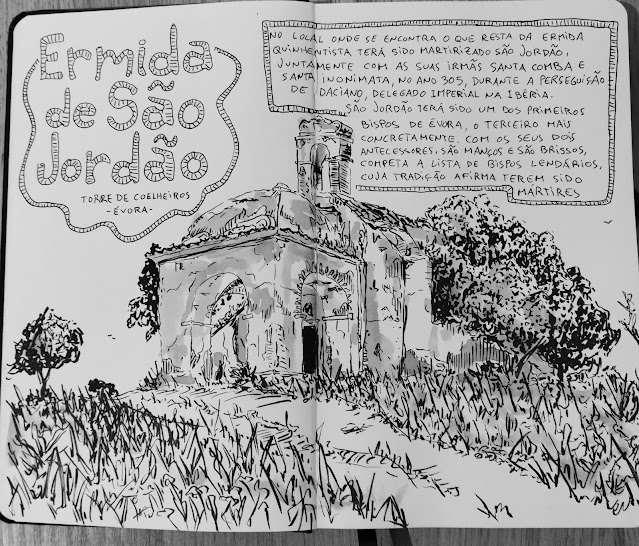 Ermida
de São
Jordão
TORRE DE COELHEIROS
-ÉVORA-
NO LOCAL ONDE SE ENCONTRA O QUE RESTA DA ERMIDA
QUINHENTISTA TERÁ SIDO MARTIRIZADO SÃO JORDÃO,
JUNTAMENTE COM AS SUAS IRMÃS SANTA COMBA E
SANTA INONIMATA, NO ANO 305, DURANTE A PERSEGUISÃO
DE DACIANO, DELEGADO IMPERIAL NA IBÉRIA.
SÃO JORDÃO TERÁ SIDO UM DOS PRIMEIROS
BISPOS DE ÉVORA, O TERCEIRO MAIS
CONCRETAMENTE, COM OS SEUS DOIS
ANTECESSORES, SÃO MANÇOS E SÃO BRISSOS,
COMPETA A LISTA DE BISPOS LENDÁRIOS,
CUJA TRADIÇÃO AFIRMA TEREM SIDO
MÁRTIRES